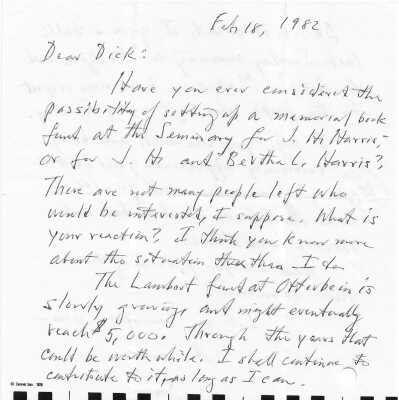 Feb 18, 1982
Dear Dick:
Have you ever considered the
possibility of setting up a memorial book
fund at the Seminary for J. H. Harris,
or for J. H. and Bertha L. Harris?
There are not many people left who
would be interested, I suppose. What is
your reaction? I think you know more
about the situation than I do.
The Lambert fund at Otterbein is
slowly growing, and might eventually
reach $5,000. Through the years that
could be worth while. I shall continue to
contribute to it, as long as I can.